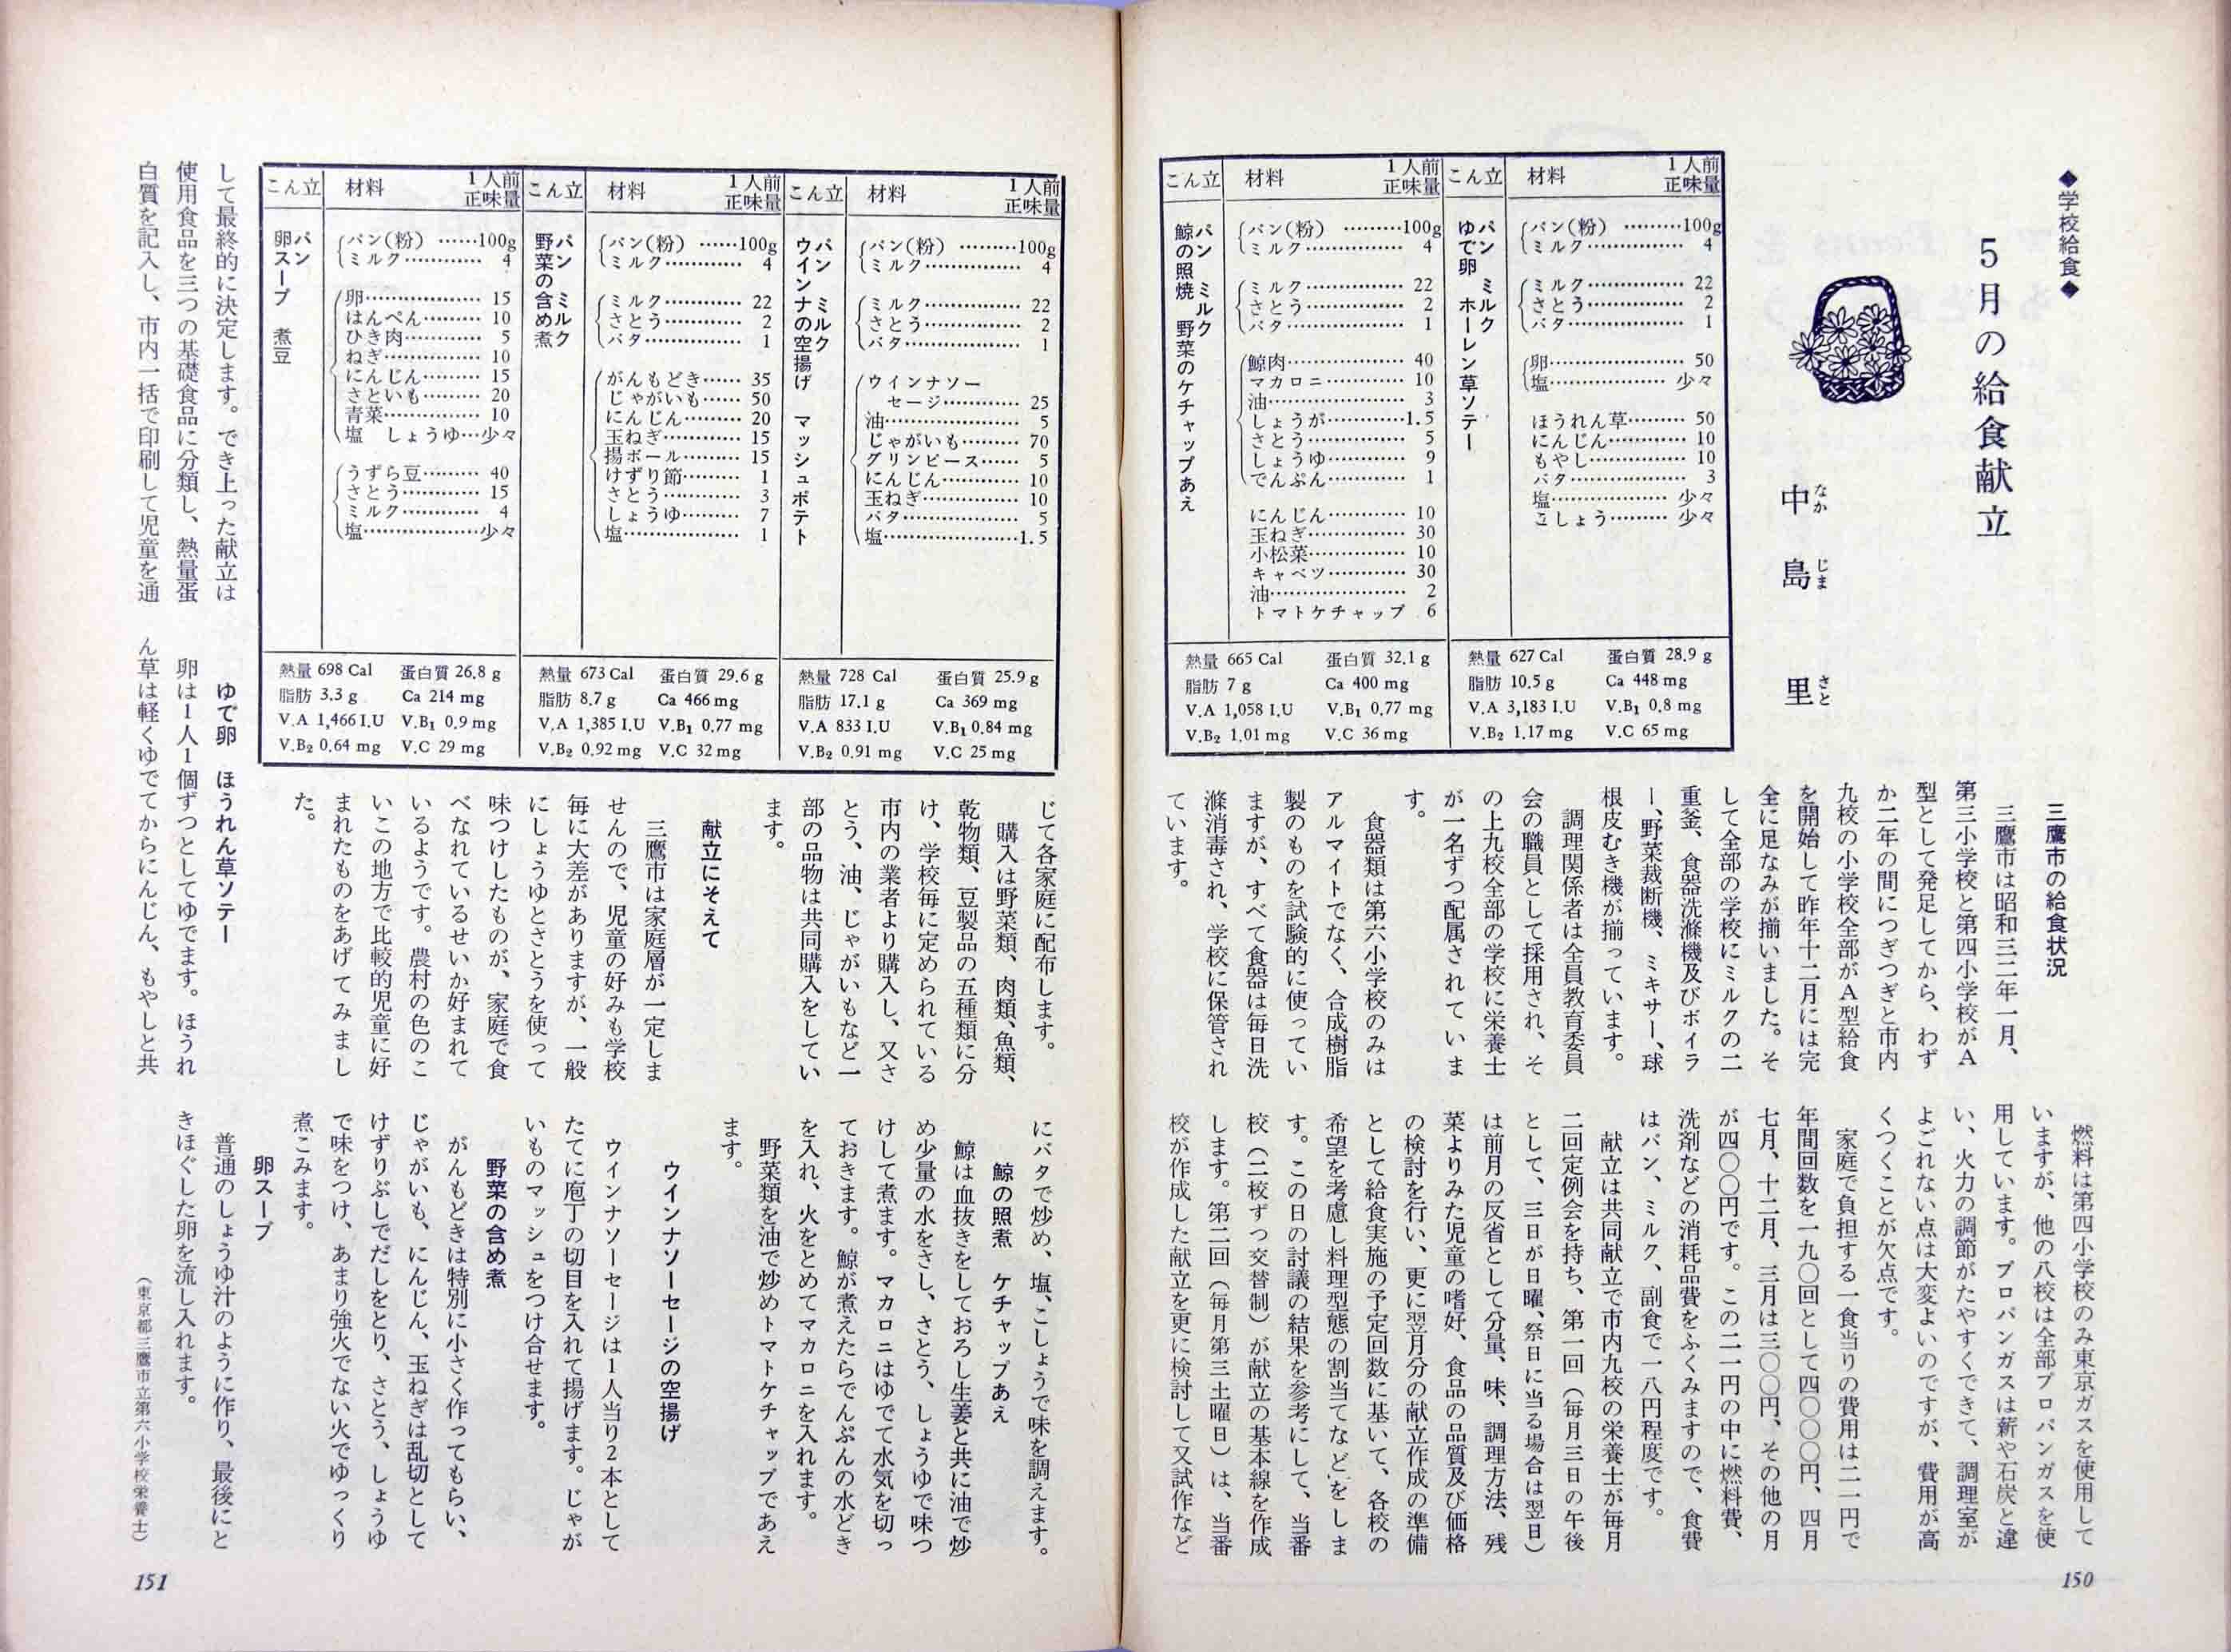 ◆学校給食◆
5月の給食献立
中島　里
なか
じま
さと
こん立　材料　1人前正味量
パン　ミルク
ゆで卵　ホーレン草ソテー
パン(粉)………100g
ミルク……………4
ミルク……………22
さとう……………2
バタ………………1
卵…………………50
塩………………少々
ほうれん草………50
にんじん…………10
もやし……………10
バタ………………3
塩………………少々
こしょう………少々
熱量 627 Cal　蛋白質 28.9 g
脂肪 10.5 g　Ca 448 mg
V.A 3,183 I.U　V.B₁ 0.8 mg
V.B₂ 1.17 mg　V.C 65 mg
こん立　材料　1人前正味量
パン　ミルク
鯨の照焼　野菜のケチャップあえ
パン(粉)………100g
ミルク……………4
ミルク……………22
さとう……………2
バタ………………1
鯨肉………………40
マカロニ…………10
油…………………3
しょうが…………1.5
さとう……………5
しょうゆ…………9
でんぷん…………1
にんじん…………10
玉ねぎ……………30
小松菜……………10
キャベツ…………30
油…………………2
トマトケチャップ 6
熱量 665 Cal　蛋白質 32.1 g
脂肪 7 g　Ca 400 mg
V.A 1,058 I.U　V.B₁ 0.77 mg
V.B₂ 1.01 mg　V.C 36 mg
三鷹市の給食状況
三鷹市は昭和三二年一月、
第三小学校と第四小学校がA
型として発足してから、わず
か二年の間につぎつぎと市内
九校の小学校全部がA型給食
を開始して昨年十二月には完
全に足なみが揃いました。そ
して全部の学校にミルクの二
重釜、食器洗滌機及びボイラ
ー、野菜裁断機、ミキサー、球
根皮むき機が揃っています。
調理関係者は全員教育委員
会の職員として採用され、そ
の上九校全部の学校に栄養士
が一名ずつ配属されていま
す。
食器類は第六小学校のみは
アルマイトでなく、合成樹脂
製のものを試験的に使ってい
ますが、すべて食器は毎日洗
滌消毒され、学校に保管され
ています。
燃料は第四小学校のみ東京ガスを使用して
いますが、他の八校は全部プロパンガスを使
用しています。プロパンガスは薪や石炭と違
い、火力の調節がたやすくできて、調理室が
よごれない点は大変よいのですが、費用が高
くつくことが欠点です。
家庭で負担する一食当りの費用は二一円で
年間回数を一九〇回として四〇〇〇円、四月
七月、十二月、三月は三〇〇円、その他の月
が四〇〇円です。この二一円の中に燃料費、
洗剤などの消耗品費をふくみますので、食費
はパン、ミルク、副食で一八円程度です。
献立は共同献立で市内九校の栄養士が毎月
二回定例会を持ち、第一回（毎月三日の午後
として、三日が日曜、祭日に当る場合は翌日）
は前月の反省として分量、味、調理方法、残
菜よりみた児童の嗜好、食品の品質及び価格
の検討を行い、更に翌月分の献立作成の準備
として給食実施の予定回数に基いて、各校の
希望を考慮し料理型態の割当てなどをしま
す。この日の討議の結果を参考にして、当番
校（二校ずつ交替制）が献立の基本線を作成
します。第二回（毎月第三土曜日）は、当番
校が作成した献立を更に検討して又試作など
150
こん立　材料　1人前正味量
パン　ミルク
ウインナの空揚げ　マッシュポテト
パン(粉)………100g
ミルク……………4
ミルク……………22
さとう……………2
バタ………………1
ウインナソー
セージ……………25
油…………………5
じゃがいも………70
グリンピース……5
にんじん…………10
玉ねぎ……………10
バタ………………5
塩…………………1.5
熱量 728 Cal　蛋白質 25.9 g
脂肪 17.1 g　Ca 369 mg
V.A 833 I.U　V.B₁ 0.84 mg
V.B₂ 0.91 mg　V.C 25 mg
こん立　材料　1人前正味量
パン　ミルク
野菜の含め煮
パン(粉)……100g
ミルク…………4
ミルク…………22
さとう…………2
バタ……………1
がんもどき……35
じゃがいも……50
にんじん………20
玉ねぎ…………15
揚ボール………15
けずり節………1
さとう…………3
しょうゆ………7
塩………………1
熱量 673 Cal　蛋白質 29.6 g
脂肪 8.7 g　Ca 466 mg
V.A 1,385 I.U　V.B₁ 0.77 mg
V.B₂ 0.92 mg　V.C 32 mg
こん立　材料　1人前正味量
パン
卵スープ　煮豆
パン(粉)……100g
ミルク…………4
卵………………15
はんぺん………10
ひき肉…………5
ねぎ……………10
にんじん………15
さといも………20
青菜……………10
塩　しょうゆ…少々
うずら豆………40
さとう…………15
ミルク…………4
塩……………少々
熱量 698 Cal　蛋白質 26.8 g
脂肪 3.3 g　Ca 214 mg
V.A 1,466 I.U　V.B₁ 0.9 mg
V.B₂ 0.64 mg　V.C 29 mg
して最終的に決定します。でき上った献立は
使用食品を三つの基礎食品に分類し、熱量蛋
白質を記入し、市内一括で印刷して児童を通
じて各家庭に配布します。
購入は野菜類、肉類、魚類、
乾物類、豆製品の五種類に分
け、学校毎に定められている
市内の業者より購入し、又さ
とう、油、じゃがいもなど一
部の品物は共同購入をしてい
ます。
献立にそえて
三鷹市は家庭層が一定しま
せんので、児童の好みも学校
毎に大差がありますが、一般
にしょうゆとさとうを使って
味つけしたものが、家庭で食
べなれているせいか好まれて
いるようです。農村の色のこ
いこの地方で比較的児童に好
まれたものをあげてみまし
た。
ゆで卵　ほうれん草ソテー
卵は1人1個ずつとしてゆでます。ほうれ
ん草は軽くゆでてからにんじん、もやしと共
にバタで炒め、塩、こしょうで味を調えます。
鯨の照煮　ケチャップあえ
鯨は血抜きをしておろし生姜と共に油で炒
め少量の水をさし、さとう、しょうゆで味つ
けして煮ます。マカロニはゆでて水気を切っ
ておきます。鯨が煮えたらでんぷんの水どき
を入れ、火をとめてマカロニを入れます。
野菜類を油で炒めトマトケチャップであえ
ます。
ウインナソーセージの空揚げ
ウインナソーセージは1人当り2本として
たてに庖丁の切目を入れて揚げます。じゃが
いものマッシュをつけ合せます。
野菜の含め煮
がんもどきは特別に小さく作ってもらい、
じゃがいも、にんじん、玉ねぎは乱切として
けずりぶしでだしをとり、さとう、しょうゆ
で味をつけ、あまり強火でない火でゆっくり
煮こみます。
卵スープ
普通のしょうゆ汁のように作り、最後にと
きほぐした卵を流し入れます。
（東京都三鷹市立第六小学校栄養士）
151